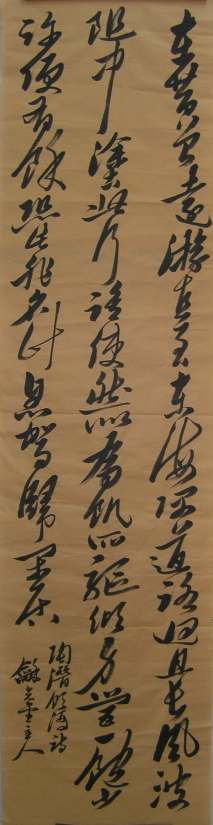 在昔曾遠游直至東海隅道路迥且長風波
阻中塗此行誰使然似為飢所驅傾身營一飽少
許便有餘恐此非名計息駕歸閑居
陶潛飲酒詩
龢主人